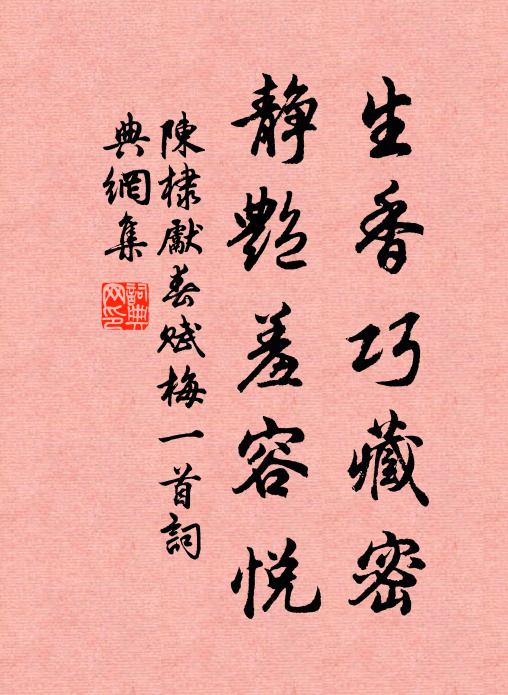 生香巧藏密
静艷羞容悅
陳棣獻春賦梅一首詞
典網集
詞典网印